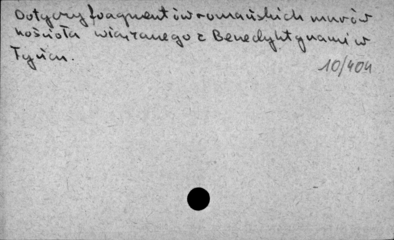 Dotyczy fragmentów romańskich murów
kościoła wiązanego z Benedyktynami w
Tyńcu.
10/404